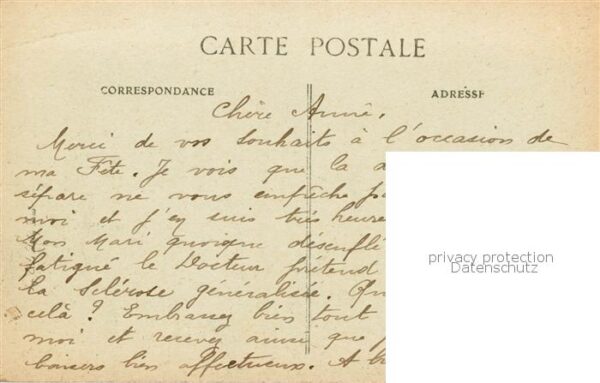 CARTE POSTALE
CORRESPONDANCE
ADRESSE
Chère Anne,
Merci de vos souhaits à l'occasion de
ma Fête. Je vois que la d
sépare ne vous empêche pa
moi et j'en suis très heure
Mon Mari quoique désenflé
fatigué le Docteur prétend
la sclérose généralisée. Qu
celà? Embrassez bien tout
moi et recevez ainsi que
baisers bien affectueux. A b
privacy protection
Datenschutz